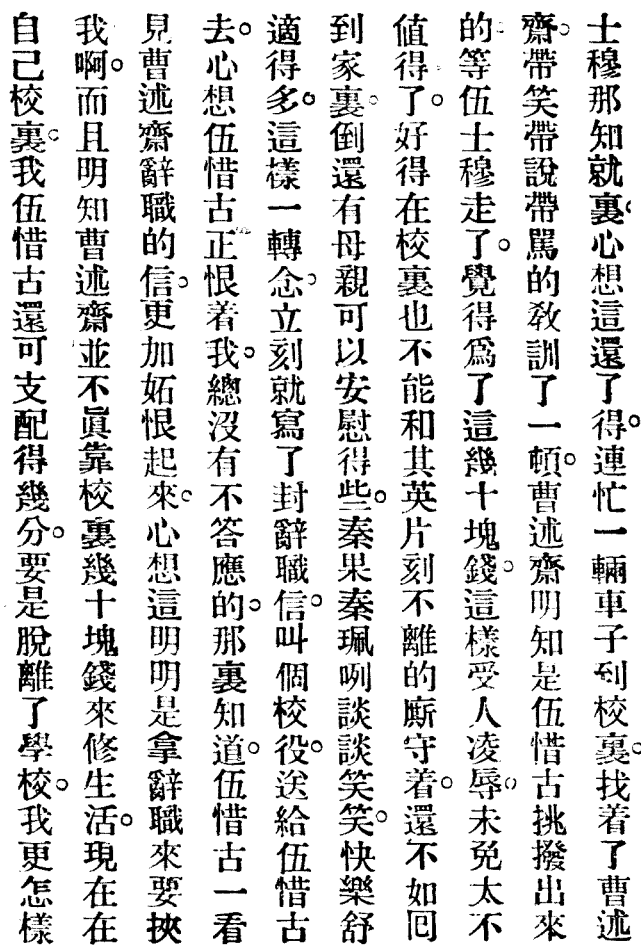 士穆那知就裏。心想這還了得。連忙一輛車子到校裏。找着了曹述
齋。帶笑帶說帶罵的教訓了一頓。曹述齋明知是伍惜古挑撥出來
的。等伍士穆走了。覺得爲了這幾十塊錢。這樣受人凌辱。未免太不
值得了。好得在校裏也不能和其英片刻不離的厮守着。還不如囘
到家裏。倒還有母親可以安慰得些。秦果秦珮咧談談笑笑。快樂舒
適得多。這樣一轉念。立刻就寫了封辭職信。叫個校役。送給伍惜古
去。心想伍惜古正恨着我。總沒有不答應的。那裏知道。伍惜古一看
見曹述齋辭職的信。更加妬恨起來。心想這明明是拿辭職來要挾
我啊。而且明知曹述齋並不眞靠校裏幾十塊錢來修生活。現在在
自己校裏。我伍惜古還可支配得幾分。要是脫離了學校。我更怎樣